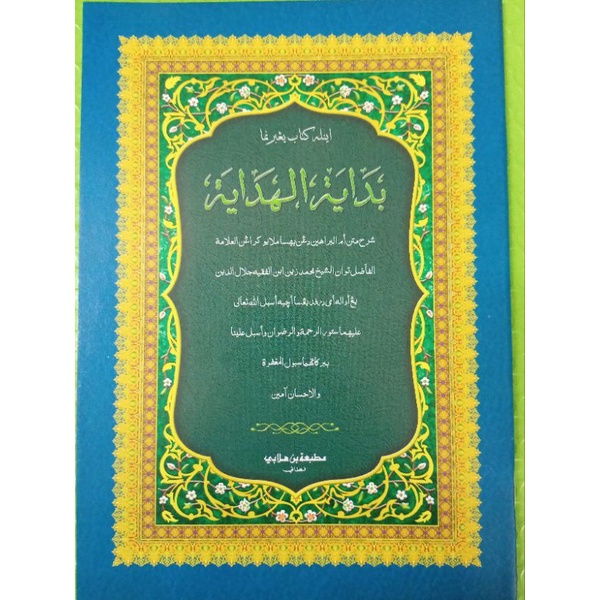 اينله كتاب يڠبرنما
بداية الهداية
شرح متن أم البراهين دڠن بهسا ملايو كراڠن العلامة
الفاضل توان الشيخ محمد زين ابن الفقيه جلال الدين
يڠ أداله اي بربڠسا أچيه أسبل الله تعالى
عليهما ستور الرحمة والرضوان وأسبل علينا
ببركاتهما سيول المغفرة
والاحسان آمين
مطبعة بن هلابي
فطاني